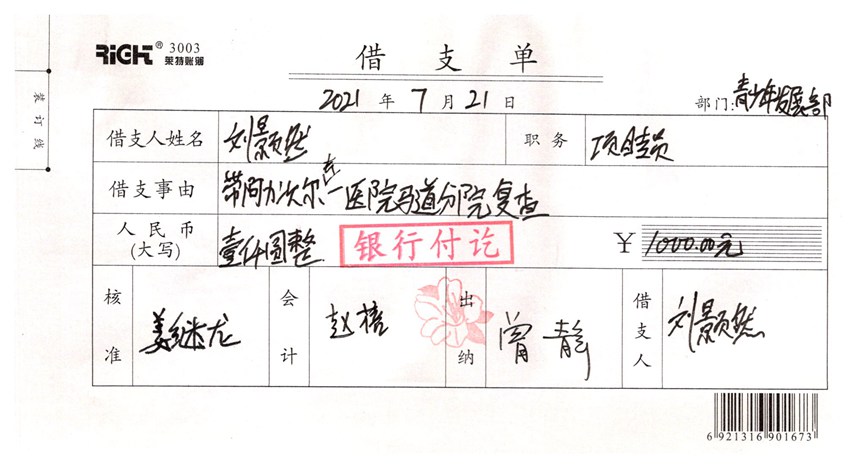 RiGHT® 3003
莱特账簿
借支单
2021年7月21日
部门:青少年发展部
装订线
借支人姓名 刘景然 职务 项目专员
借支事由 带阿力次尔去一医院马道分院复查
人民币(大写) 壹仟圆整 银行付讫 ¥ 1000.00元
核准 姜继龙 会计 赵楷 出纳 曾静 借支人 刘景然
6 921316 901673